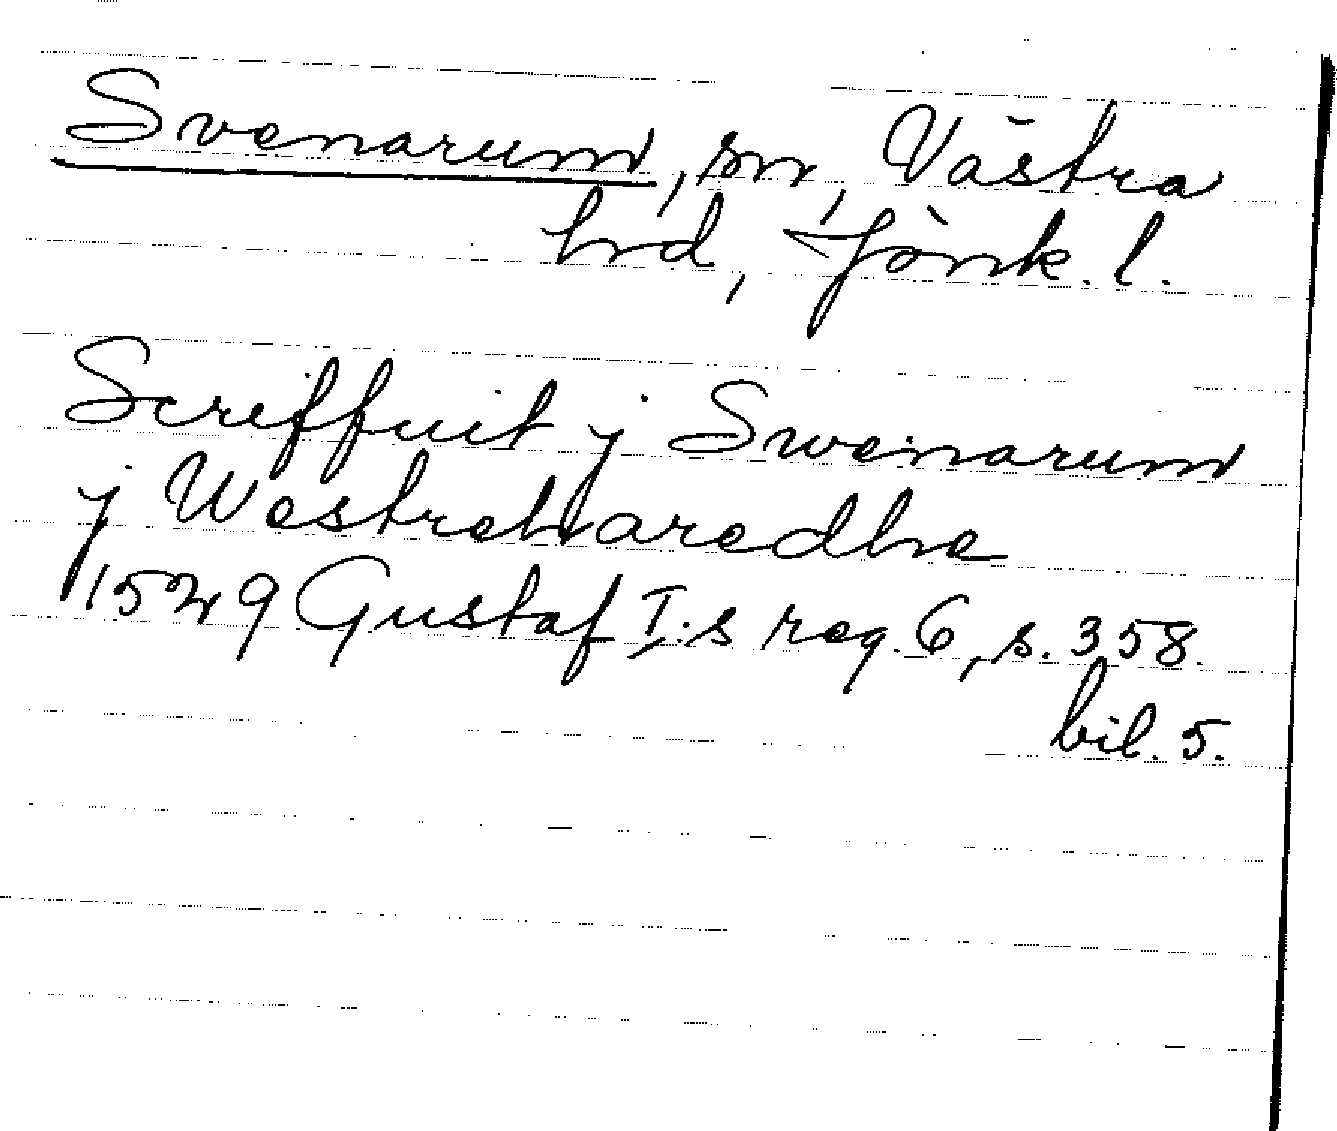 Svenarum, sn, Västra
hrd, Jönk. l.
Screffuit j Swenarum
j Westrehæredhe
1529 Gustaf I:s reg. 6, s. 358.
bil. 5.